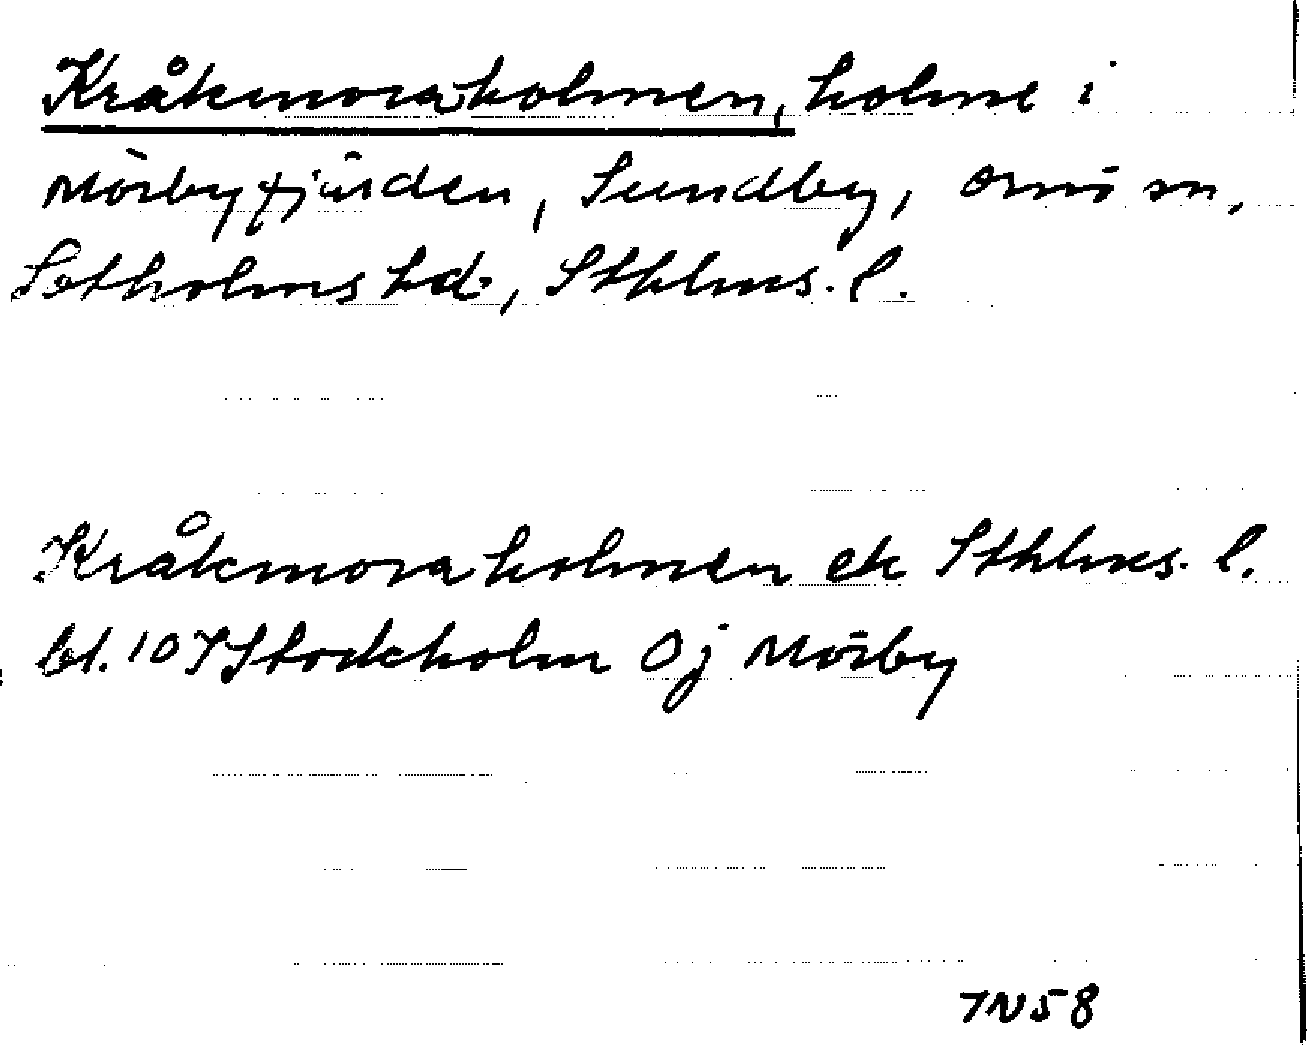 Kråkmoraholmen, holme i
Mörbyfjärden, Sundby, Ornö sn,
Sotholms hd, Sthlms. l.
Kråkmoraholmen ek Sthlms. l.
bl. 107 Stockholm Oj Mörby
TN58